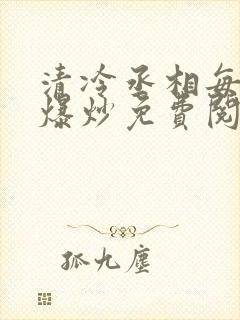 清冷丞相每
爆炒免費閱
孤九塵